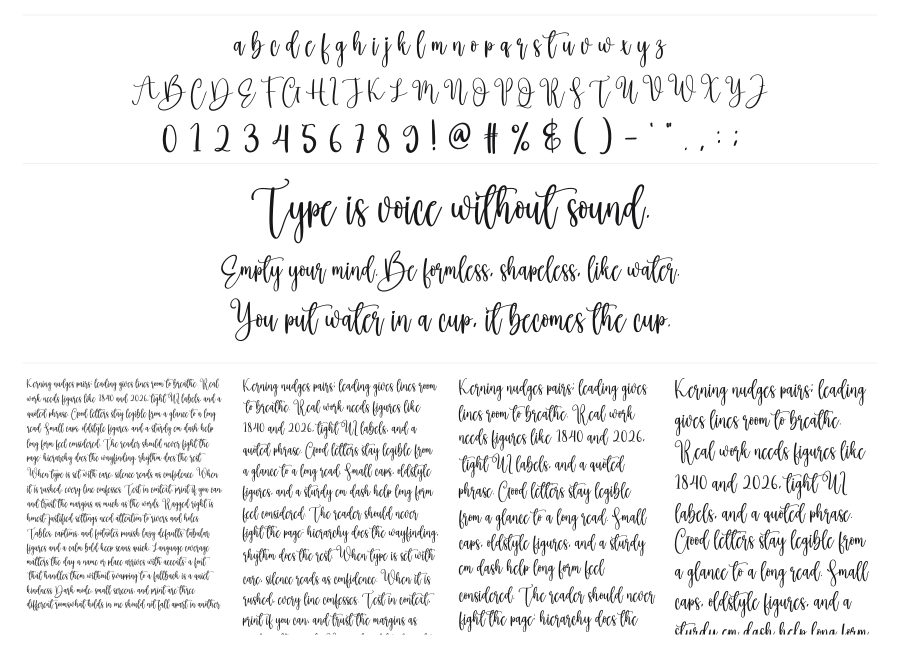 a b c d e f g h i j k l m n o p q r s t u v w x y z
A B C D E F G H I J K L M N O P Q R S T U V W X Y Z
0 1 2 3 4 5 6 7 8 9 ! @ # % & ( ) - ' " . , : ;
Type is voice without sound.
Empty your mind. Be formless, shapeless, like water.
You put water in a cup, it becomes the cup.
Kerning nudges pairs; leading gives lines room to breathe. Real
work needs figures like 1840 and 2026, tight UI labels, and a
quoted phrase. Good letters stay legible from a glance to a long
read. Small caps, oldstyle figures, and a sturdy em dash help
long form feel considered. The reader should never fight the
page; hierarchy does the wayfinding, rhythm does the rest.
When type is set with care, silence reads as confidence. When
it is rushed, every line confesses. Test in context, print if you can,
and trust the margins as much as the words. Ragged right is
honest; justified settings need attention to rivers and holes.
Tables, captions, and footnotes punish lazy defaults; tabular
figures and a calm bold keep scans quick. Language coverage
matters the day a name or place arrives with accents; a font
that handles them without swapping to a fallback is a quiet
kindness. Dark mode, small screens, and print are three
different rooms; what holds in one should not fall apart in another.
Kerning nudges pairs; leading gives lines room
to breathe. Real work needs figures like
1840 and 2026, tight UI labels, and a
quoted phrase. Good letters stay legible from
a glance to a long read. Small caps, oldstyle
figures, and a sturdy em dash help long form
feel considered. The reader should never
fight the page; hierarchy does the wayfinding,
rhythm does the rest. When type is set with
care, silence reads as confidence. When it is
rushed, every line confesses. Test in context,
print if you can, and trust the margins as
Kerning nudges pairs; leading gives
lines room to breathe. Real work
needs figures like 1840 and 2026,
tight UI labels, and a quoted
phrase. Good letters stay legible
from a glance to a long read. Small
caps, oldstyle figures, and a sturdy
em dash help long form feel
considered. The reader should never
fight the page; hierarchy does the
Kerning nudges pairs; leading
gives lines room to breathe.
Real work needs figures like
1840 and 2026, tight UI
labels, and a quoted phrase.
Good letters stay legible from
a glance to a long read. Small
caps, oldstyle figures, and a
sturdy em dash help long form